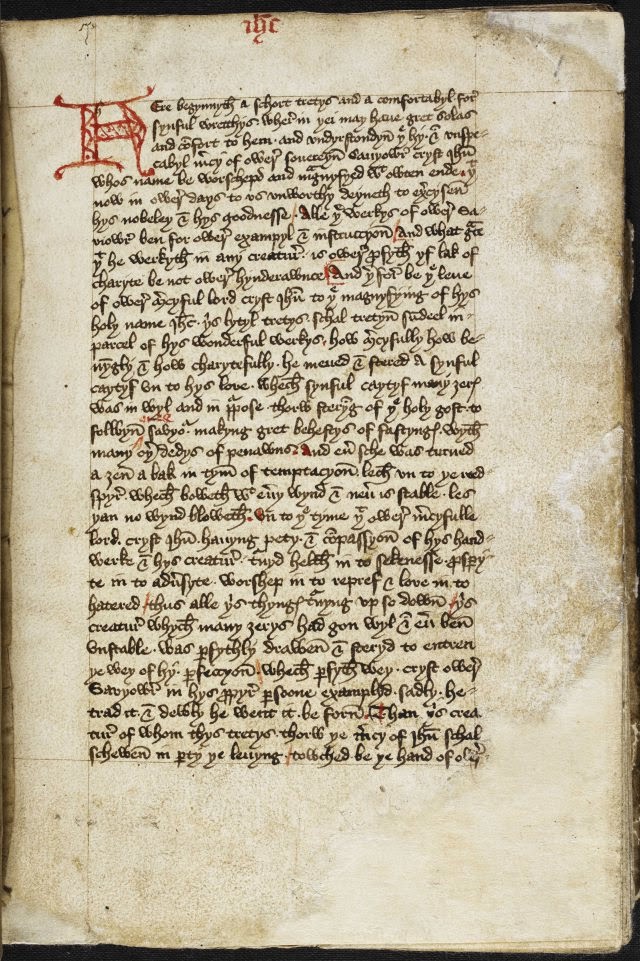 ihc
Here begynnyth a schort tretys and a comfortabyl for
synful wrecchys. wher in þei may haue gret solas
and cõfort to hem. and vndyrstondyn þe hy. & vnspe-
cabyl mcy of ower souereyn sauyowr cryst Jhu
whos name be worschepd and magnyfyed wt owten ende. þt
now in ower days to vs vnworthy deyneth to exercysen
hys nobeley & hys goodnesse. Alle þe werkys of ower Sa-
viowr ben for ower exampyl & instruccyon and what grce
þt he werkyth in any creatur. is ower profyth yf lak of
charyte be not ower hynderawnce And þerfor be þe leue
of ower mcyful lord cryst Jhu to þe magnyfying of hys
holy name Jhc. þis lytyl tretys. schal tretyn sũdeel in
parcel of hys wonderful werkys. how mcyfully how be-
nyngly & how charytefully. he meued & stered a synful
caytyf vn to hys love. whech synful caytyf many ȝerys
was in wyl and in prpose. thorw steryng of þe holy gost. to
folwyn oure savyor. makyng gret behestys of fastyngys. wyth
many oþer dedys of penawns. And eur sche was turned
a ȝen a bak in tym of temptacyon. lech vn to þe red-
spyr whech boweth wt eury wynd & neur is stable. les
þan no wynd bloweth. vn to þe tyme þt ower mcyfulle
lord. cryst Jhu. hauyng pety. & cõpassyon of hys hand-
werk & hys creatur. tnyd helth in to sekenesse. prspry
te in to aduersyte. worshep in to repref & love in to
hatered. thus alle þis thyngys tnyng vp so down. þis
creatur whych many ȝerys had gon wyl & eur ben
vnstable. was pfythly drawen & steryd to entren
þe wey of hy. pfeccyon. whech pfyth wey. cryst ower
Savyowr in hys propyr psoone examplyd. sadly. he
trad it. & dewly he went it. be forn. Than þis crea
tur of whom thys tretys. thorw þe mcy of Jhu schal
schewen in pty þe leuyng. towched be þe hand of ower